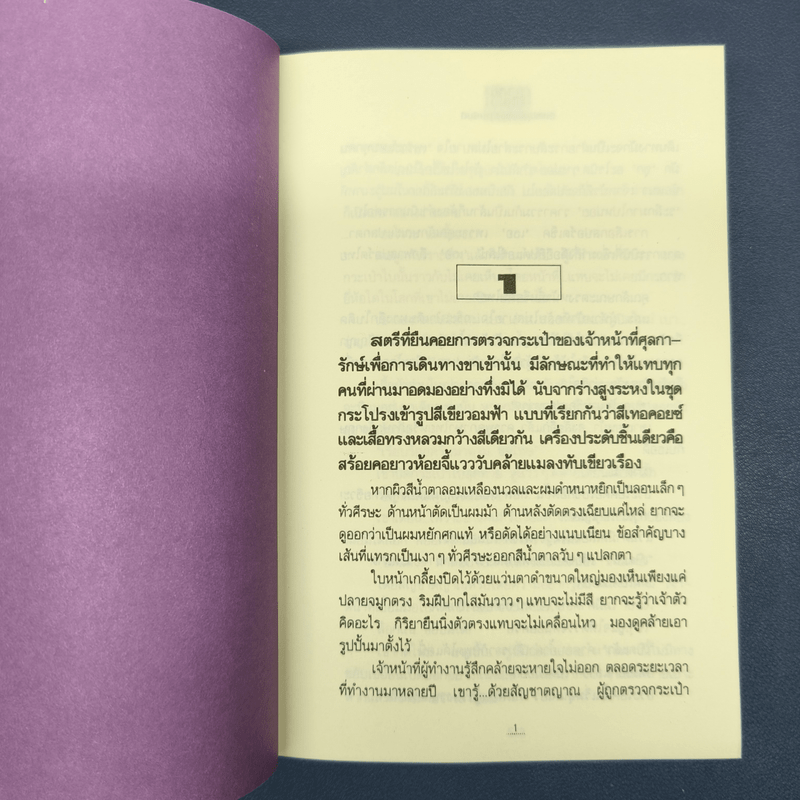 1
สตรีที่ยืนคอยการตรวจกระเป๋าของเจ้าหน้าที่ศุลกา–
รักษ์เพื่อการเดินทางขาเข้านั้น มีลักษณะที่ทำให้แทบทุก
คนที่ผ่านมาอดมองอย่างทึ่งมิได้ นับจากร่างสูงระหงในชุด
กระโปรงเข้ารูปสีเขียวอมฟ้า แบบที่เรียกกันว่าสีเทอคอยซ์
และเสื้อทรงหลวมกว้างสีเดียวกัน เครื่องประดับชิ้นเดียวคือ
สร้อยคอยาวห้อยจี้แวววับคล้ายแมลงทับเขียวเรือง
หากผิวสีน้ำตาลอมเหลืองนวลและผมดำหนาหยิกเป็นลอนเล็ก ๆ
ทั่วศีรษะ ด้านหน้าตัดเป็นผมม้า ด้านหลังตัดตรงเฉียบแค่ไหล่ ยากจะ
ดูออกว่าเป็นผมหยักศกแท้ หรือดัดได้อย่างแนบเนียน ข้อสำคัญบาง
เส้นที่แทรกเป็นเงา ๆ ทั่วศีรษะออกสีน้ำตาลวับ ๆ แปลกตา
ใบหน้าเกลี้ยงปิดไว้ด้วยแว่นตาดำขนาดใหญ่มองเห็นเพียงแค่
ปลายจมูกตรง ริมฝีปากใสมันวาว ๆ แทบจะไม่มีสี ยากจะรู้ว่าเจ้าตัว
คิดอะไร กิริยายืนนิ่งตัวตรงแทบจะไม่เคลื่อนไหว มองดูคล้ายเอา
รูปปั้นมาตั้งไว้
เจ้าหน้าที่ผู้ทำงานรู้สึกคล้ายจะหายใจไม่ออก ตลอดระยะเวลา
ที่ทำงานมาหลายปี เขารู้...ด้วยสัญชาตญาณ ผู้ถูกตรวจกระเป๋า
1